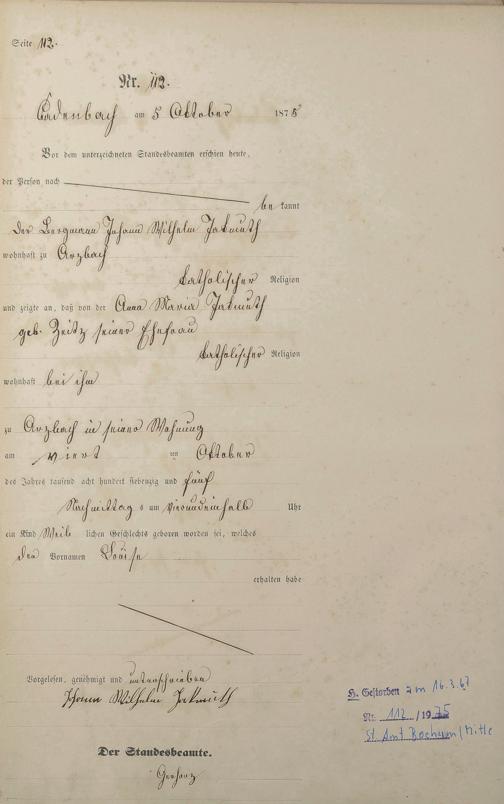 Seite 112.
Nr. 112.
Cadenbach am 5 Oktober 1875
Vor dem unterzeichneten Standesbeamten erschien heute,
der Person nach
be kannt
der Bergmann Johann Wilhelm Jakmuth
wohnhaft zu Arzbach
katholischer Religion
und zeigte an, daß von der Anna Maria Jakmuth
geb. Zeitz seiner Ehefrau
katholischer Religion
wohnhaft bei ihm
zu Arzbach in seiner Wohnung
am viert en Oktober
des Jahres tausend acht hundert siebenzig und fünf
Nachmittag s um vierundeinhalb Uhr
ein Kind Weib lichen Geschlechts geboren worden sei, welches
den Vornamen Louise
erhalten habe
Vorgelesen, genehmigt und unterschrieben
Johann Wilhelm Jakmuth
Der Standesbeamte.
H. Gestorben am 16.3.67
Nr. 112 / 19
St. Amt Bochum / Mitte